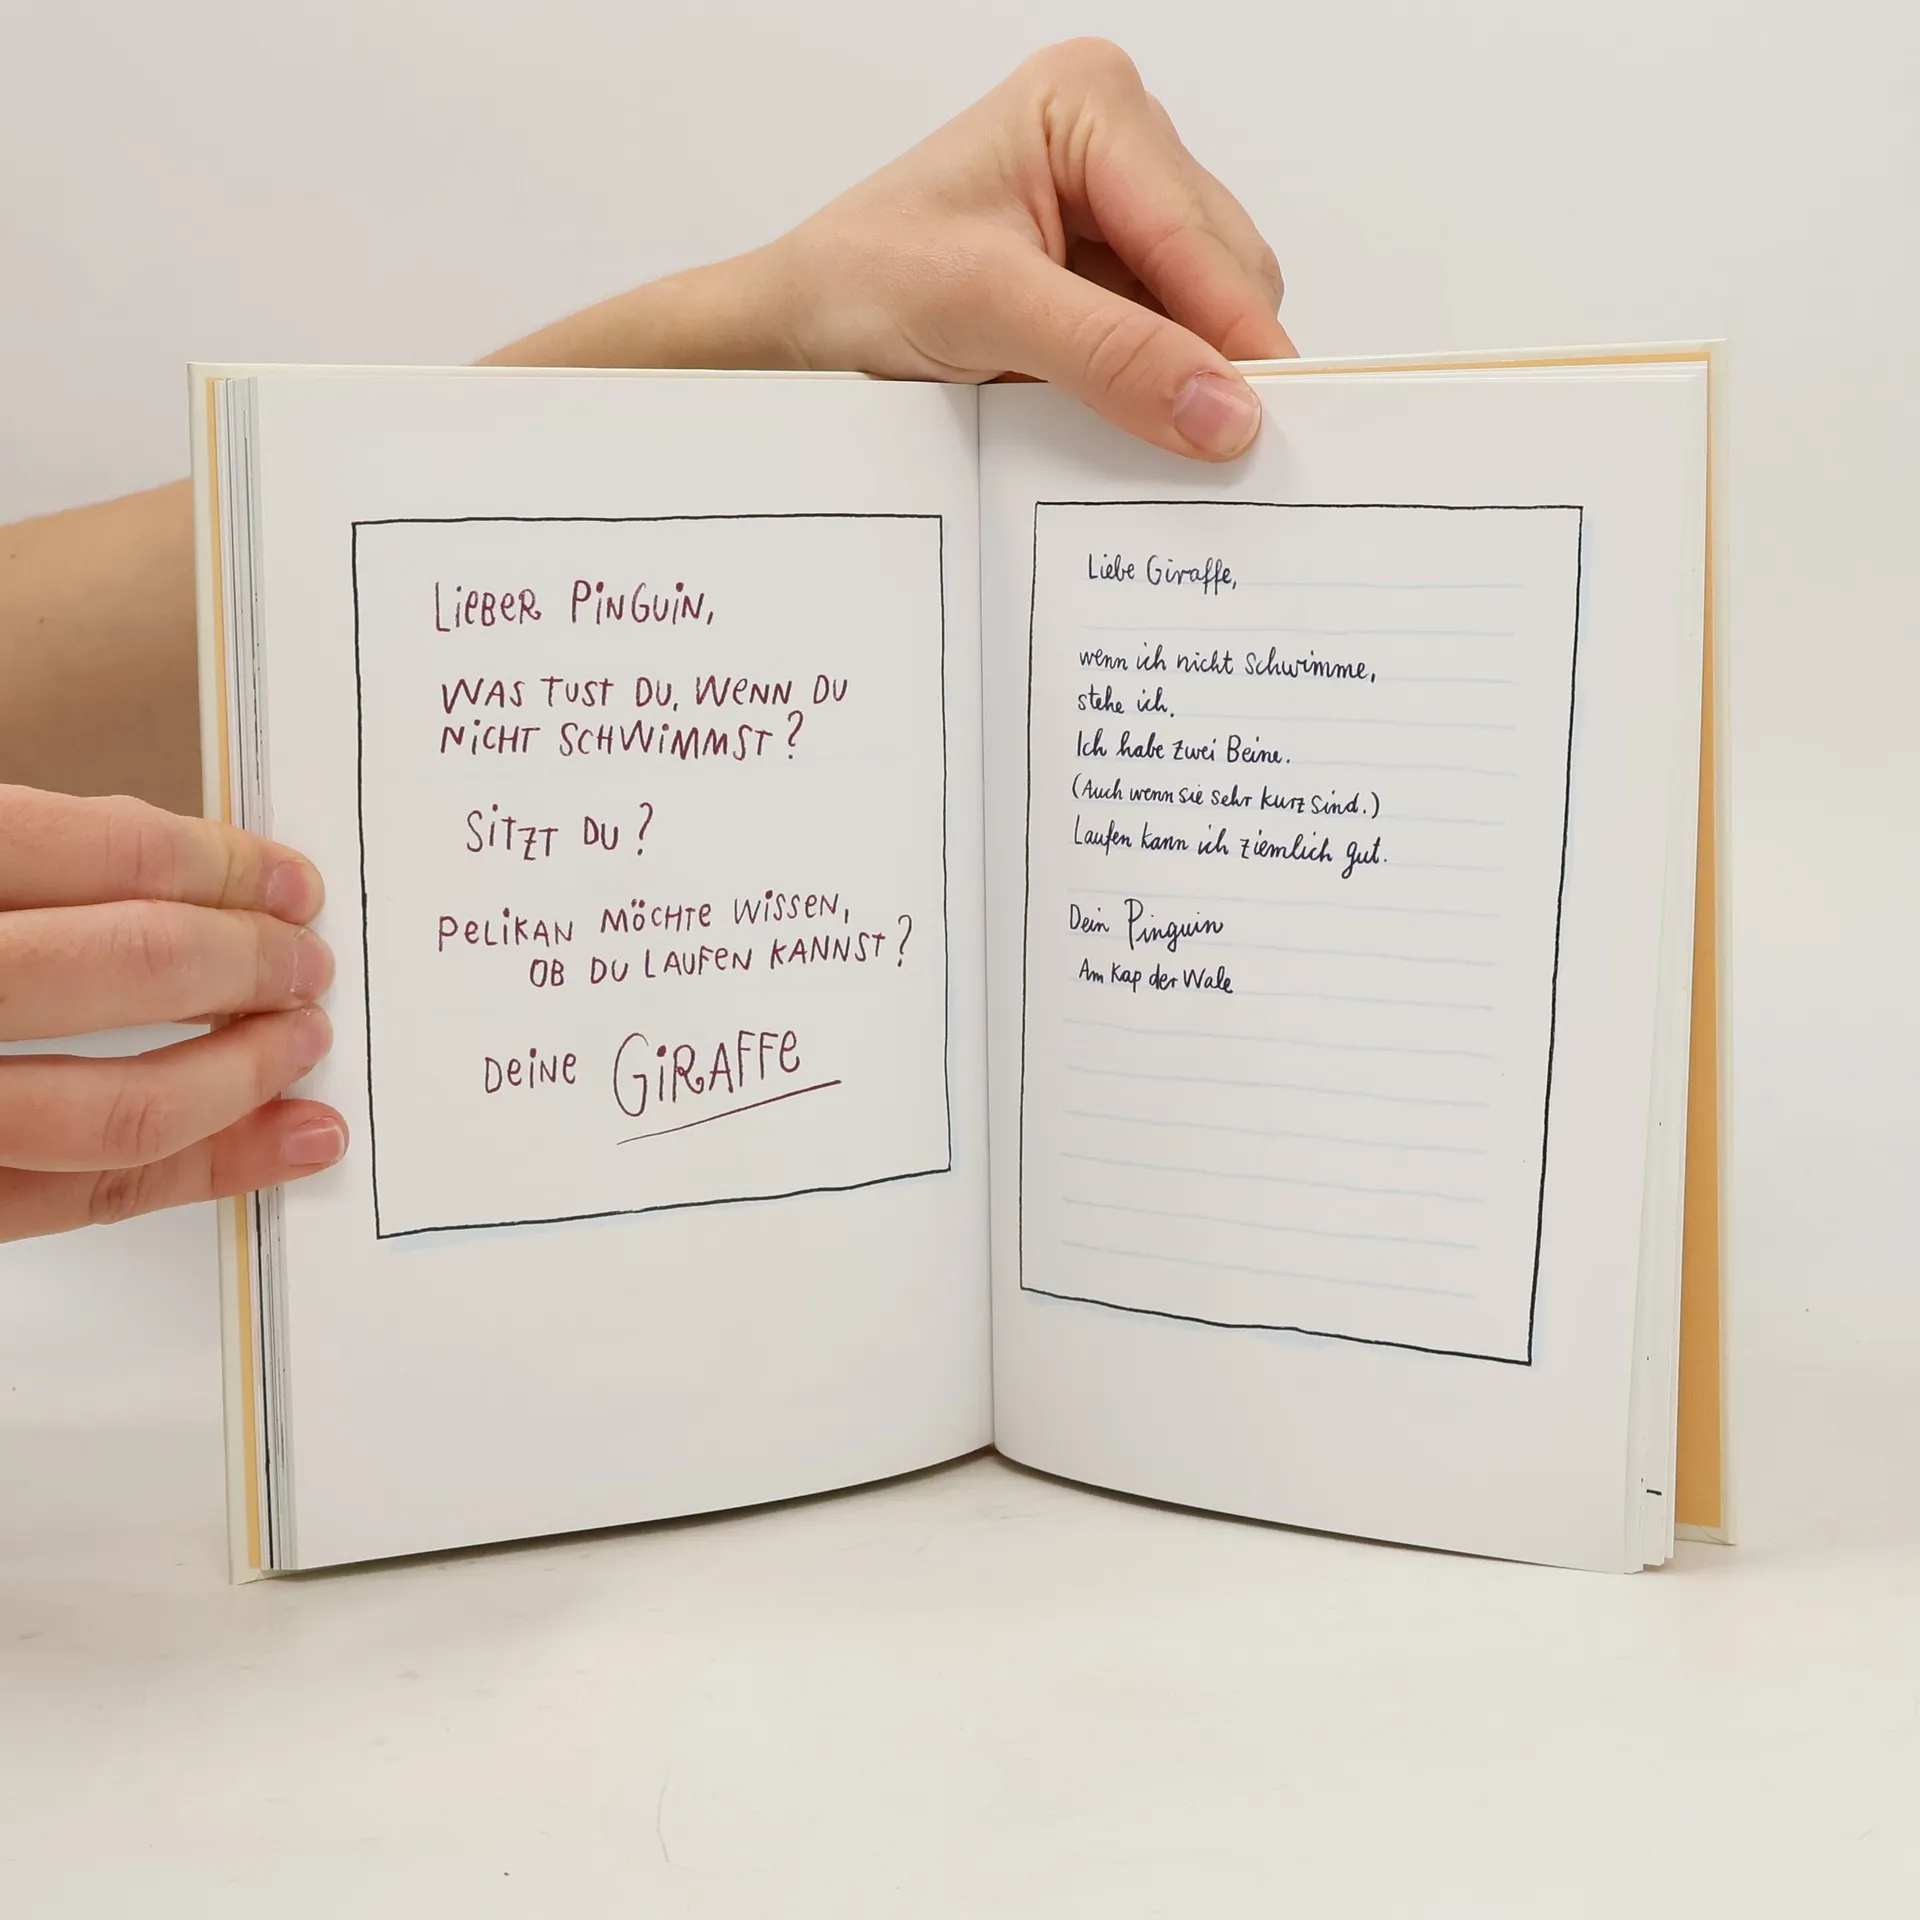 LiEBER PiNGUiN,
WAS TUST DU, WENN DU
NiCHT SCHWiMMST?
SiTZT DU?
PELiKAN MÖCHTE WiSSEN,
OB DU LAUFEN KANNST?
DEiNE GiRAFFE
Liebe Giraffe,
wenn ich nicht schwimme,
stehe ich.
Ich habe zwei Beine.
(Auch wenn sie sehr kurz sind.)
Laufen kann ich ziemlich gut.
Dein Pinguin
Am Kap der Wale